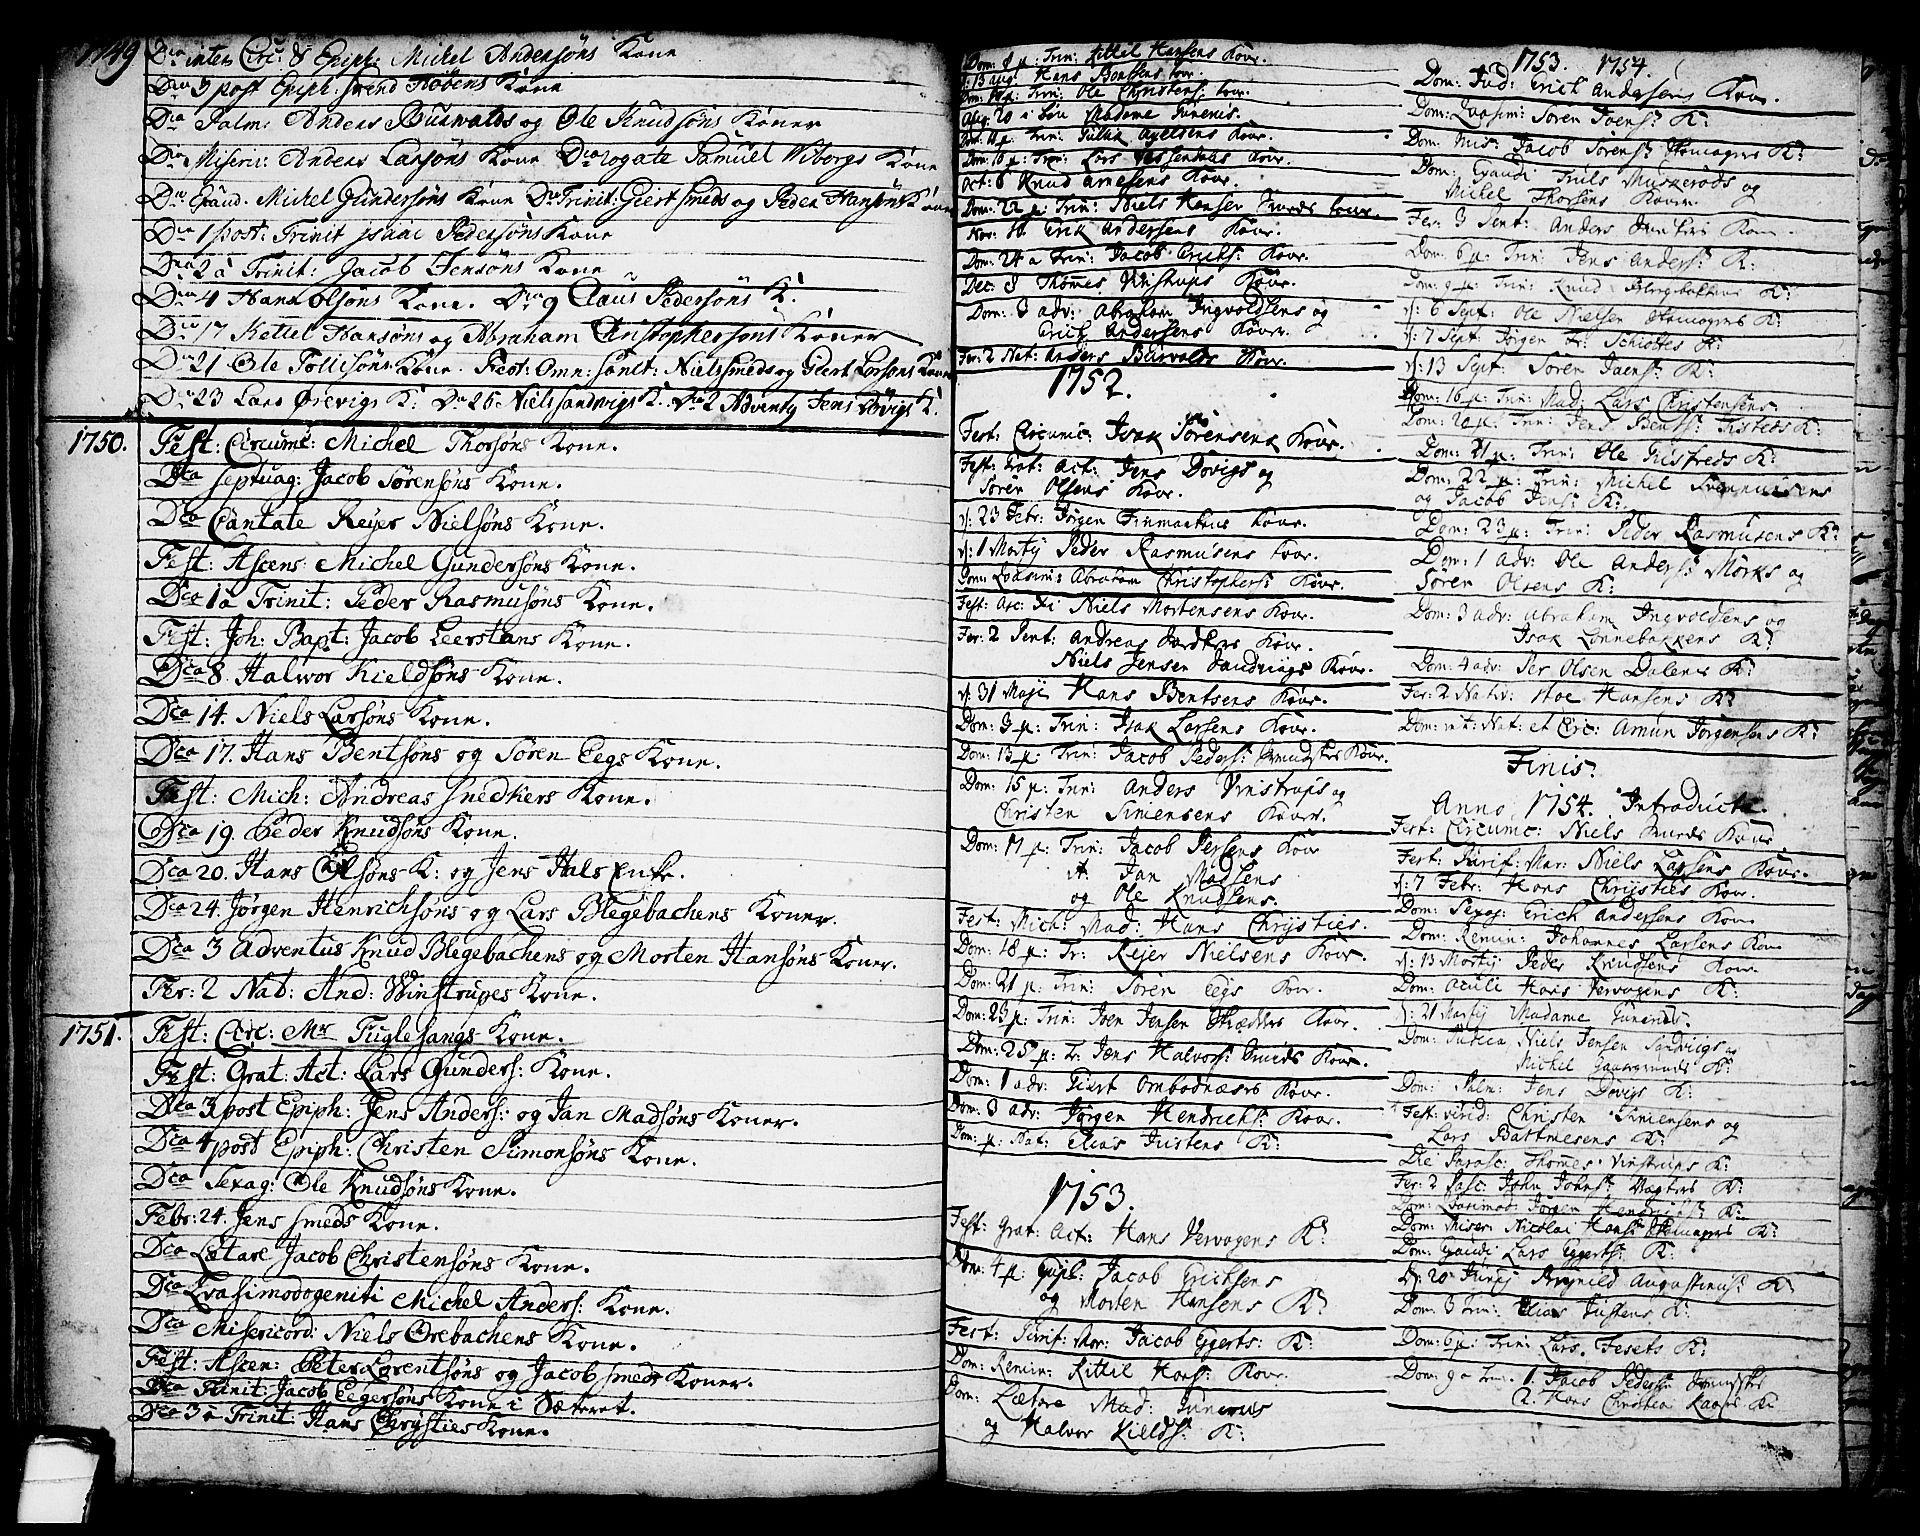 1749
Dca inter Circ: & Epiph: Michel Andersøns Kone
Dca 3 post Epiph: Svend Tobens Kone
Dca Palm: Anders Buswalds og Ole Knudsøns Koner
Dca Miseric: Anders Larsøns Kone Dca Rogate Samuel Wiborgs Kone
Dca Exaud. Michel Gundersøns Kone Dca Trinit: Giert Smeds og Peder Hansøns Kone
Dca 1 post: Trinit Isaac Pedersøns Kone
Dca 2 a Trinit: Jacob Jensøns Kone
Dca 4 Hans Olsøns Kone. Dca 9 Claus Pedersøns K.
Dca 17 Kettel Hansøns og Abraham Christophersøns Koner
Dca 21 Ole Tollisøns Kone. Fest: Omn: Sanct: Niels Smeds og Giert Larsøns Kone
Dca 23 Lars Ørevigs K: Dca 25 Niels Sandvigs K. Dca 2 Adventy Jens Døvigs K.
1750.
Fest: Circumc: Michel Thorsøns Kone.
Dca Septuag: Jacob Sørensøns Kone.
Dca Cantate Reyer Nielsøns Kone.
Fest: Ascens: Michel Gundersøns Kone.
Dca 1 a Trinit: Peder Rasmusøns Kone.
Fest: Joh: Bapt: Jacob Leerstans Kone.
Dca 8. Halwor Kieldsøns Kone.
Dca 14. Niels Larsøns Kone.
Dca 17. Hans Bentsøns og Søren Eegs Kone.
Fest: Mich: Andreas Snedkers Kone.
Dca 19. Peder Knudsøns Kone.
Dca 20. Hans Olsøns K: og Jens Hals Enke.
Dca 24. Jørgen Henrichsøns og Lars Blegebachens Koner.
Dca 3 Adventus Knud Blegebachens og Morten Hansøns Koner.
Fer: 2 Nat: And: Winstrupes Kone.
1751.
Fest: Circ: Mr Fuglesangs Kone.
Fest: Grat: Act: Lars Gunders: Kone.
Dca 3 post Epiph: Jens Anders: og Jan Madsøns Koner.
Dca 4 post Epiph: Christen Simonsøns Kone.
Dca Sexag: Ole Knudsøns Kone.
Febr: 24. Jens Smeds Kone.
Dca Lætare Jacob Christensøns Kone.
Dca Qvasimodogeniti Michel Anders: Kone.
Dca Misericord: Niels Orebachens Kone.
Fest: Ascen: Peter Lorentsøns og Jacob Smeds Koner.
Dca Trinit: Jacob Eegersøns Kone i Sæteret.
Dca 3 a Trinit: Hans Chrysties Kone.
Dom: 8 p: Trin: Kittil Hansens Kovr.
d: 15 Aug: Hans Bontsens kovr.
Dom: 10 p: Trin: Ole Christens: kovr.
Aug: 20 Madame Junenis.
Dom: 11 p: Trin: Axelsens Kovr.
Dom: 16 p: Trin: Lars Kovr.
Oct: 6 Knud Arnesens Kovr.
Dom: 22 p: Trin: Niels Hanser kovr.
Nov: 10 Erik Andersens Kovr.
Dom: 24 a Trin: Jacob Ericks: Kovr.
Dec: 8 Thomes Vinstrups Kovr.
Dom: 3 adv: Abraham Ingvoldsens og
Erich Andersens Kovr.
Fer: 2 Nat: Anders Buswalds Kovr.
1752.
Fest: Circumc: Isak Sørensens Kovr.
Fest: Grat: Act: Jens Dovigs og
Søren Olsens Kovr.
d: 23 Febr: Jørgen Finmarkens kovr.
d: 1 Martij Peder Rasmusens kovr.
Dom: Qvasim: Abraham Christophers: Kovr.
Fest: Asc: Xi Niels Mortensens Kovr.
Fer: 2 Pent: Andreas Kovr.
Niels Jensen Sandviigs Kovr.
d: 31 Maji Hans Bentsens Kovr.
Dom: 3 p: Trin: Isak Larsens Kovr.
Dom: 13 p: Trin: Jacob Peders: Kovr.
Dom: 15 p: Trin: Anders Vinstrups og
Christen Simensens Kovr.
Dom: 17 p: Trin: Jacob Kovr
it Jan Madsens
og Ole Knudsens.
Fest: Mich: Mad: Hans Chrysties.
Dom: 18 p: Tr: Rejer Nielsens Kovr.
Dom: 21 p: Trin: Søren Eegs Kovr.
Dom: 23 p: Trin: Joen Jensen Kovr.
Dom: 25 p: Tr: Jens Halvors: Smeds Kovr.
Dom: 1 adv: Giert Ombodnæses Kovr.
Dom: 3 adv: Jørgen Hendrichs: Kovr.
Dom: p: Nat: Elias Justens K:
1753.
Fest: Grat: Act: Hans Vervagens K:
Dom: 4 p: Epiph: Jacob Ericksens
og Morten Hansens K:
Fest: Purif: Mar: Jacob Eggerts: K:
Dom: Remin: Kittil Hans: Kovr.
Dom: Lætare Mad: Junenis
og Halvor Kields: K:
1753. 1754.
Dom: Jud: Erich Andersens Kovr.
Dom: Qvasim: Søren Joens: K:
Dom: Mis: Jacob Sørens: K:
Dom: Exaudi Truls Muskerøds og
Michel Thorsens Kovr.
Fer: 3 Pent: Anders Kovr.
Dom: 6 p: Trin: Jens Anders: K:
Dom: 9 p: Trin: Knud Blegebakens K:
d: 6 Sept: Ole Nielsen K:
d: 7 Sept: Jørgen Fr: Schiøttes K:
d: 13 Sept: Søren Jaens: K:
Dom: 16 p: Trin: Mad: Lars Christensens.
Dom: 20 p: Trin: Jens Bents: K:
Dom: 21 p: Trin: Ole K:
Dom: 22 p: Trin: Michel Svennumsens
og Jacob Jens: K:
Dom: 23 p: Trin: Peder Rasmusens K:
Dom: 1 adv: Ole Anders: Morks og
Søren Olsens K:
Dom: 3 adv: Abraham Ingvoldsens og
Isak Lønnebakkens K:
Dom: 4 adv: Per Olsen Dalenes K:
Fer: 2 Nativ: Hansens K:
Dom: int: Nat: et Circ: Amun Jørgensens K:
Finis.
Anno 1754. Introducte.
Fest: Circumc: Niels Kovr.
Fest: Purif: Mar: Niels Larsens Kovr.
d: 7 Febr: Hans Chrijsties Kovr.
Dom: Sexag: Erich Andersens Kovr
Dom: Remin: Johannes Larsens Kovr
d: 13 Martij Peder Knudsens Kovr.
Dom: Oculi Hans Vervagens K:
d: 21 Martij Madame Junenis.
Dom: Judica Niels Jensen Sandviigs og
Michel K:
Dom: Palm: Jens Dovigs K:
Fest: virid: Christen Simensens og
Lars Battmesens K:
Die Parasc: Thomes Vinstrups K:
Fer: 2 Pasc: John Johns: K:
Dom: Qvasimod: Jørgen Hendrichs: K:
Dom: Miser: Nicolai Hans: K:
Dom: Exaudi Lars Eggerts: K:
d: 20 Junij Augustinus: K:
Dom: 3 Trin: Elias Justens K:
Dom: 6 p: Trin: Lars K:
Dom: 9 a Trin: 1. Jacob Peders:
2. Hans Christen K: